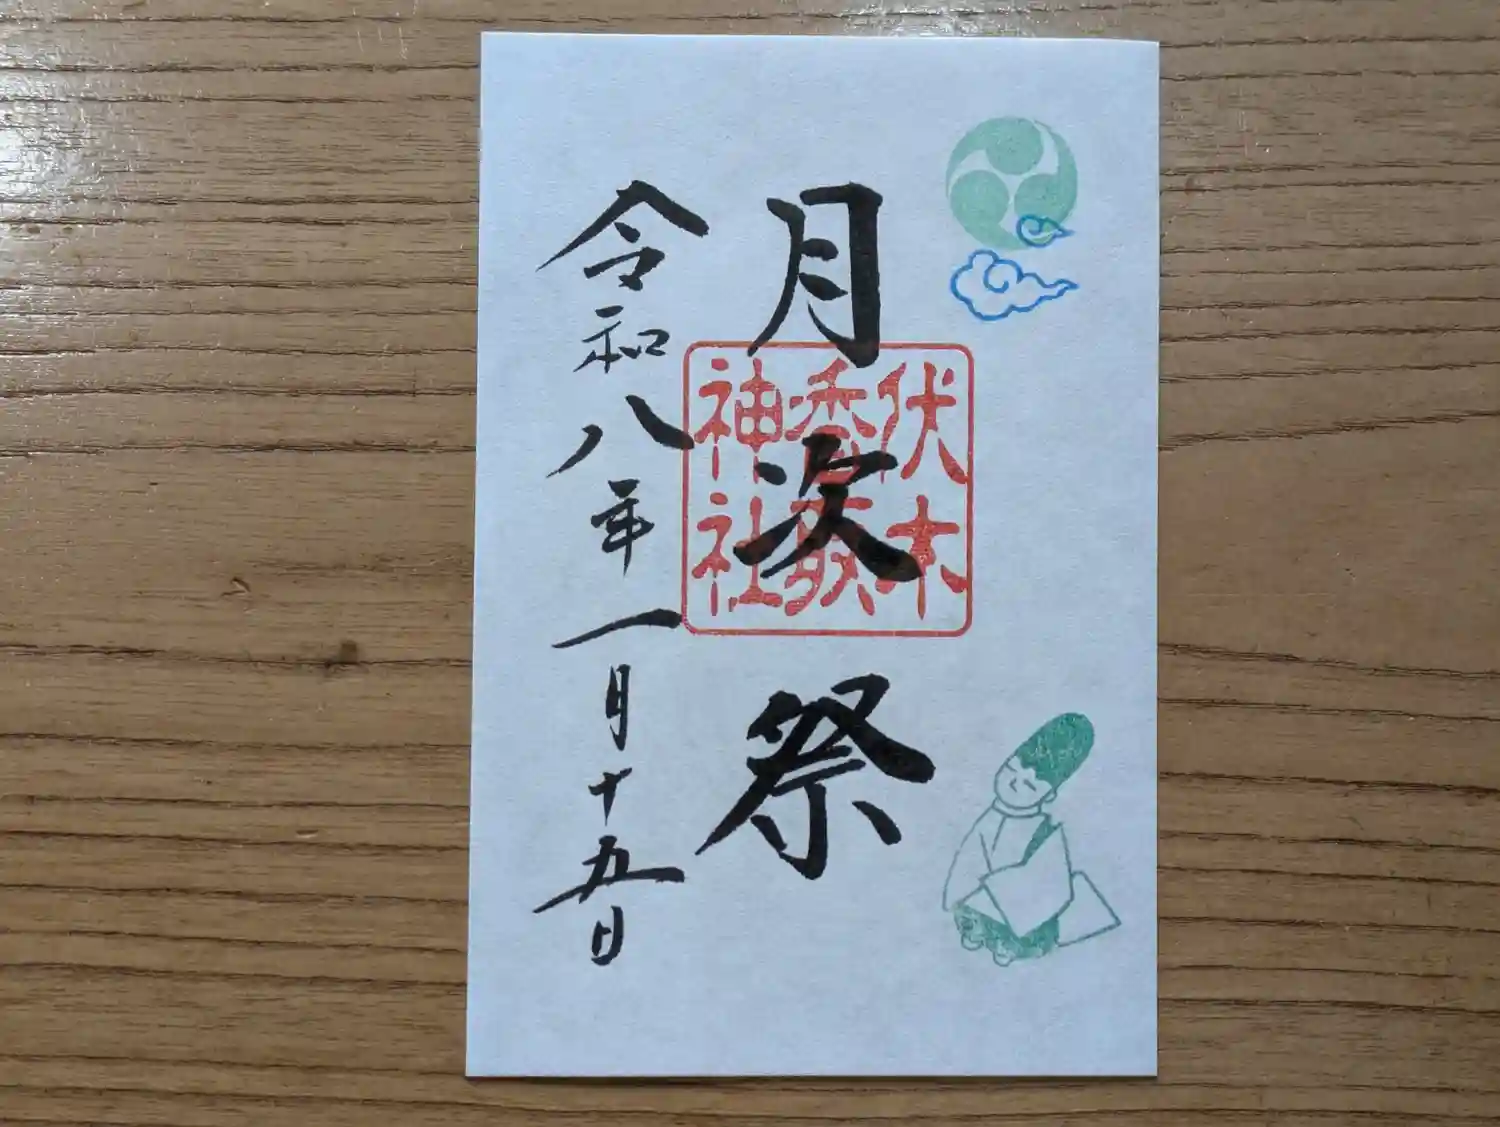 月次祭
伏木
香取
神社
令和八年一月十五日